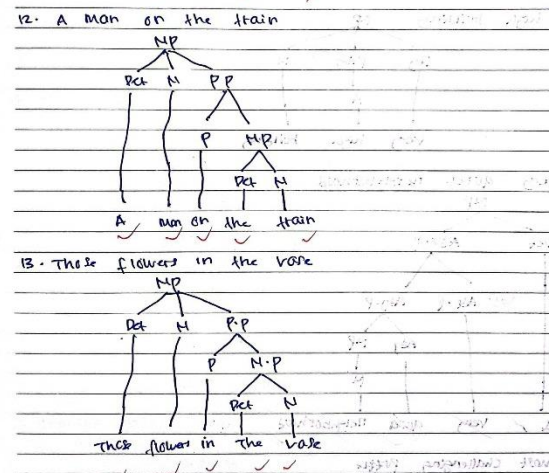 12. A man on the train
NP
Det N PP
P N.P
Det N
A man on the train
13. Those flowers in the vase
NP
Det N P.P
P N.P
Det N
Those flowers in the vase